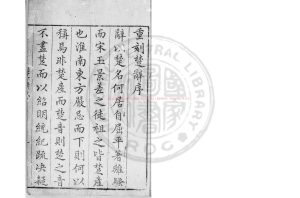 重刻楚辭序
辭以楚名何居自屈平著離騷
而宋玉景差之徒祖之皆楚產
也淮南東方嚴忌而下則何以
稱焉非楚產而楚音則楚之音
不盡楚而以紹明統紀疏決疑